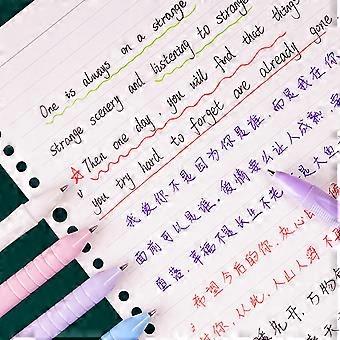 One is always on a strange
strange scenery and listening to strange
Then one day, you will find that things
you try hard to forget are already gone
我爱你不是因为你是谁，而是我在你
面前可以是谁。爱情要么让人成熟，要
堕落。幸福不是长生不老，不是大鱼
希望今后的你，决心
对你，从此，人山人海
暖花开，万物